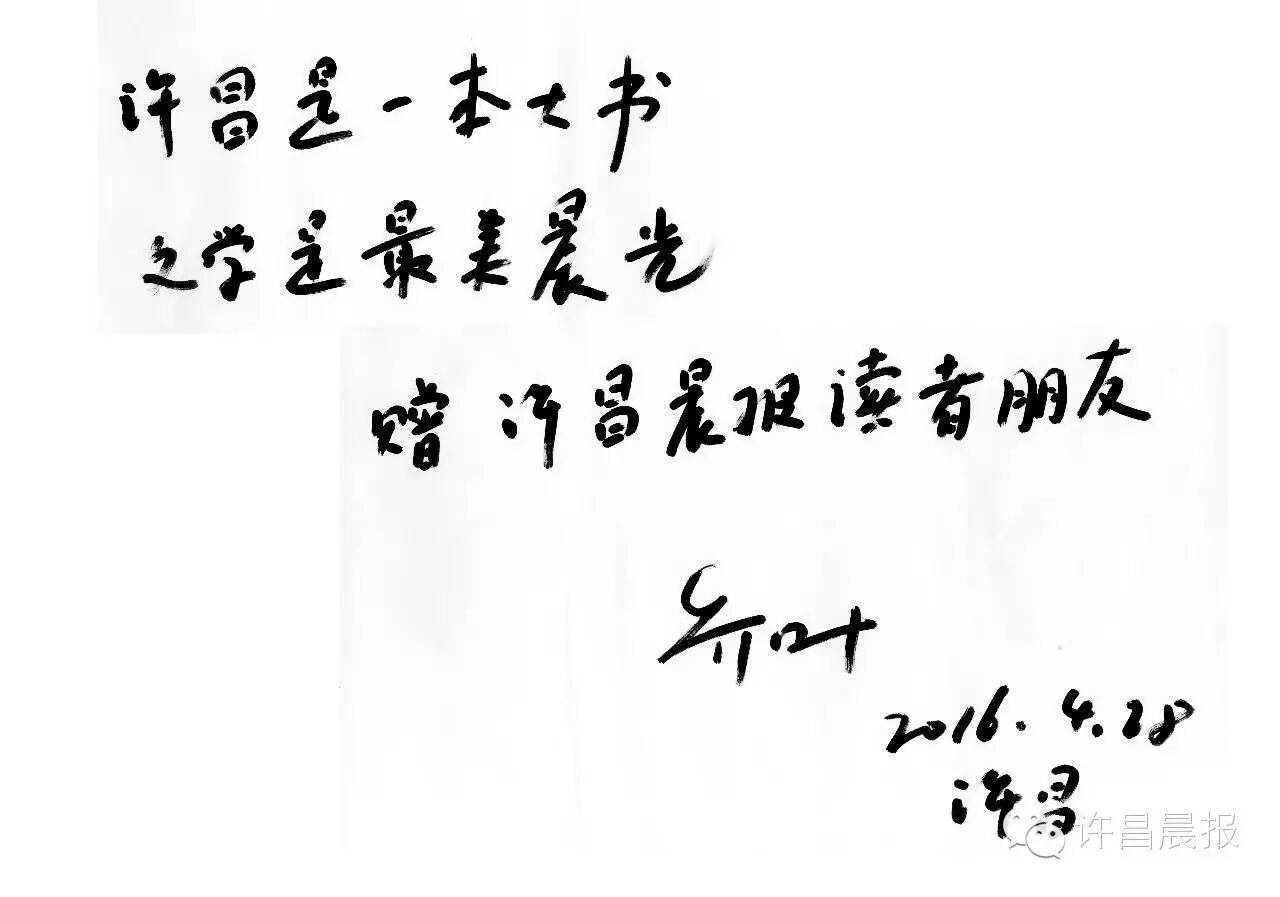 许昌是一本大书
文学是最美晨光
赠 许昌晨报读者朋友
乔叶
2016.4.28
许昌
许昌晨报